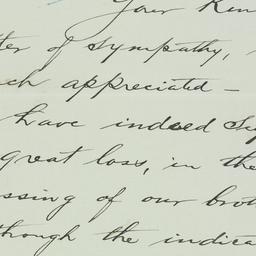 Your Kin
ter of sympathy,
ch appreciated –
have indeed su
great loss, in the
ssing of our brot
through the indica